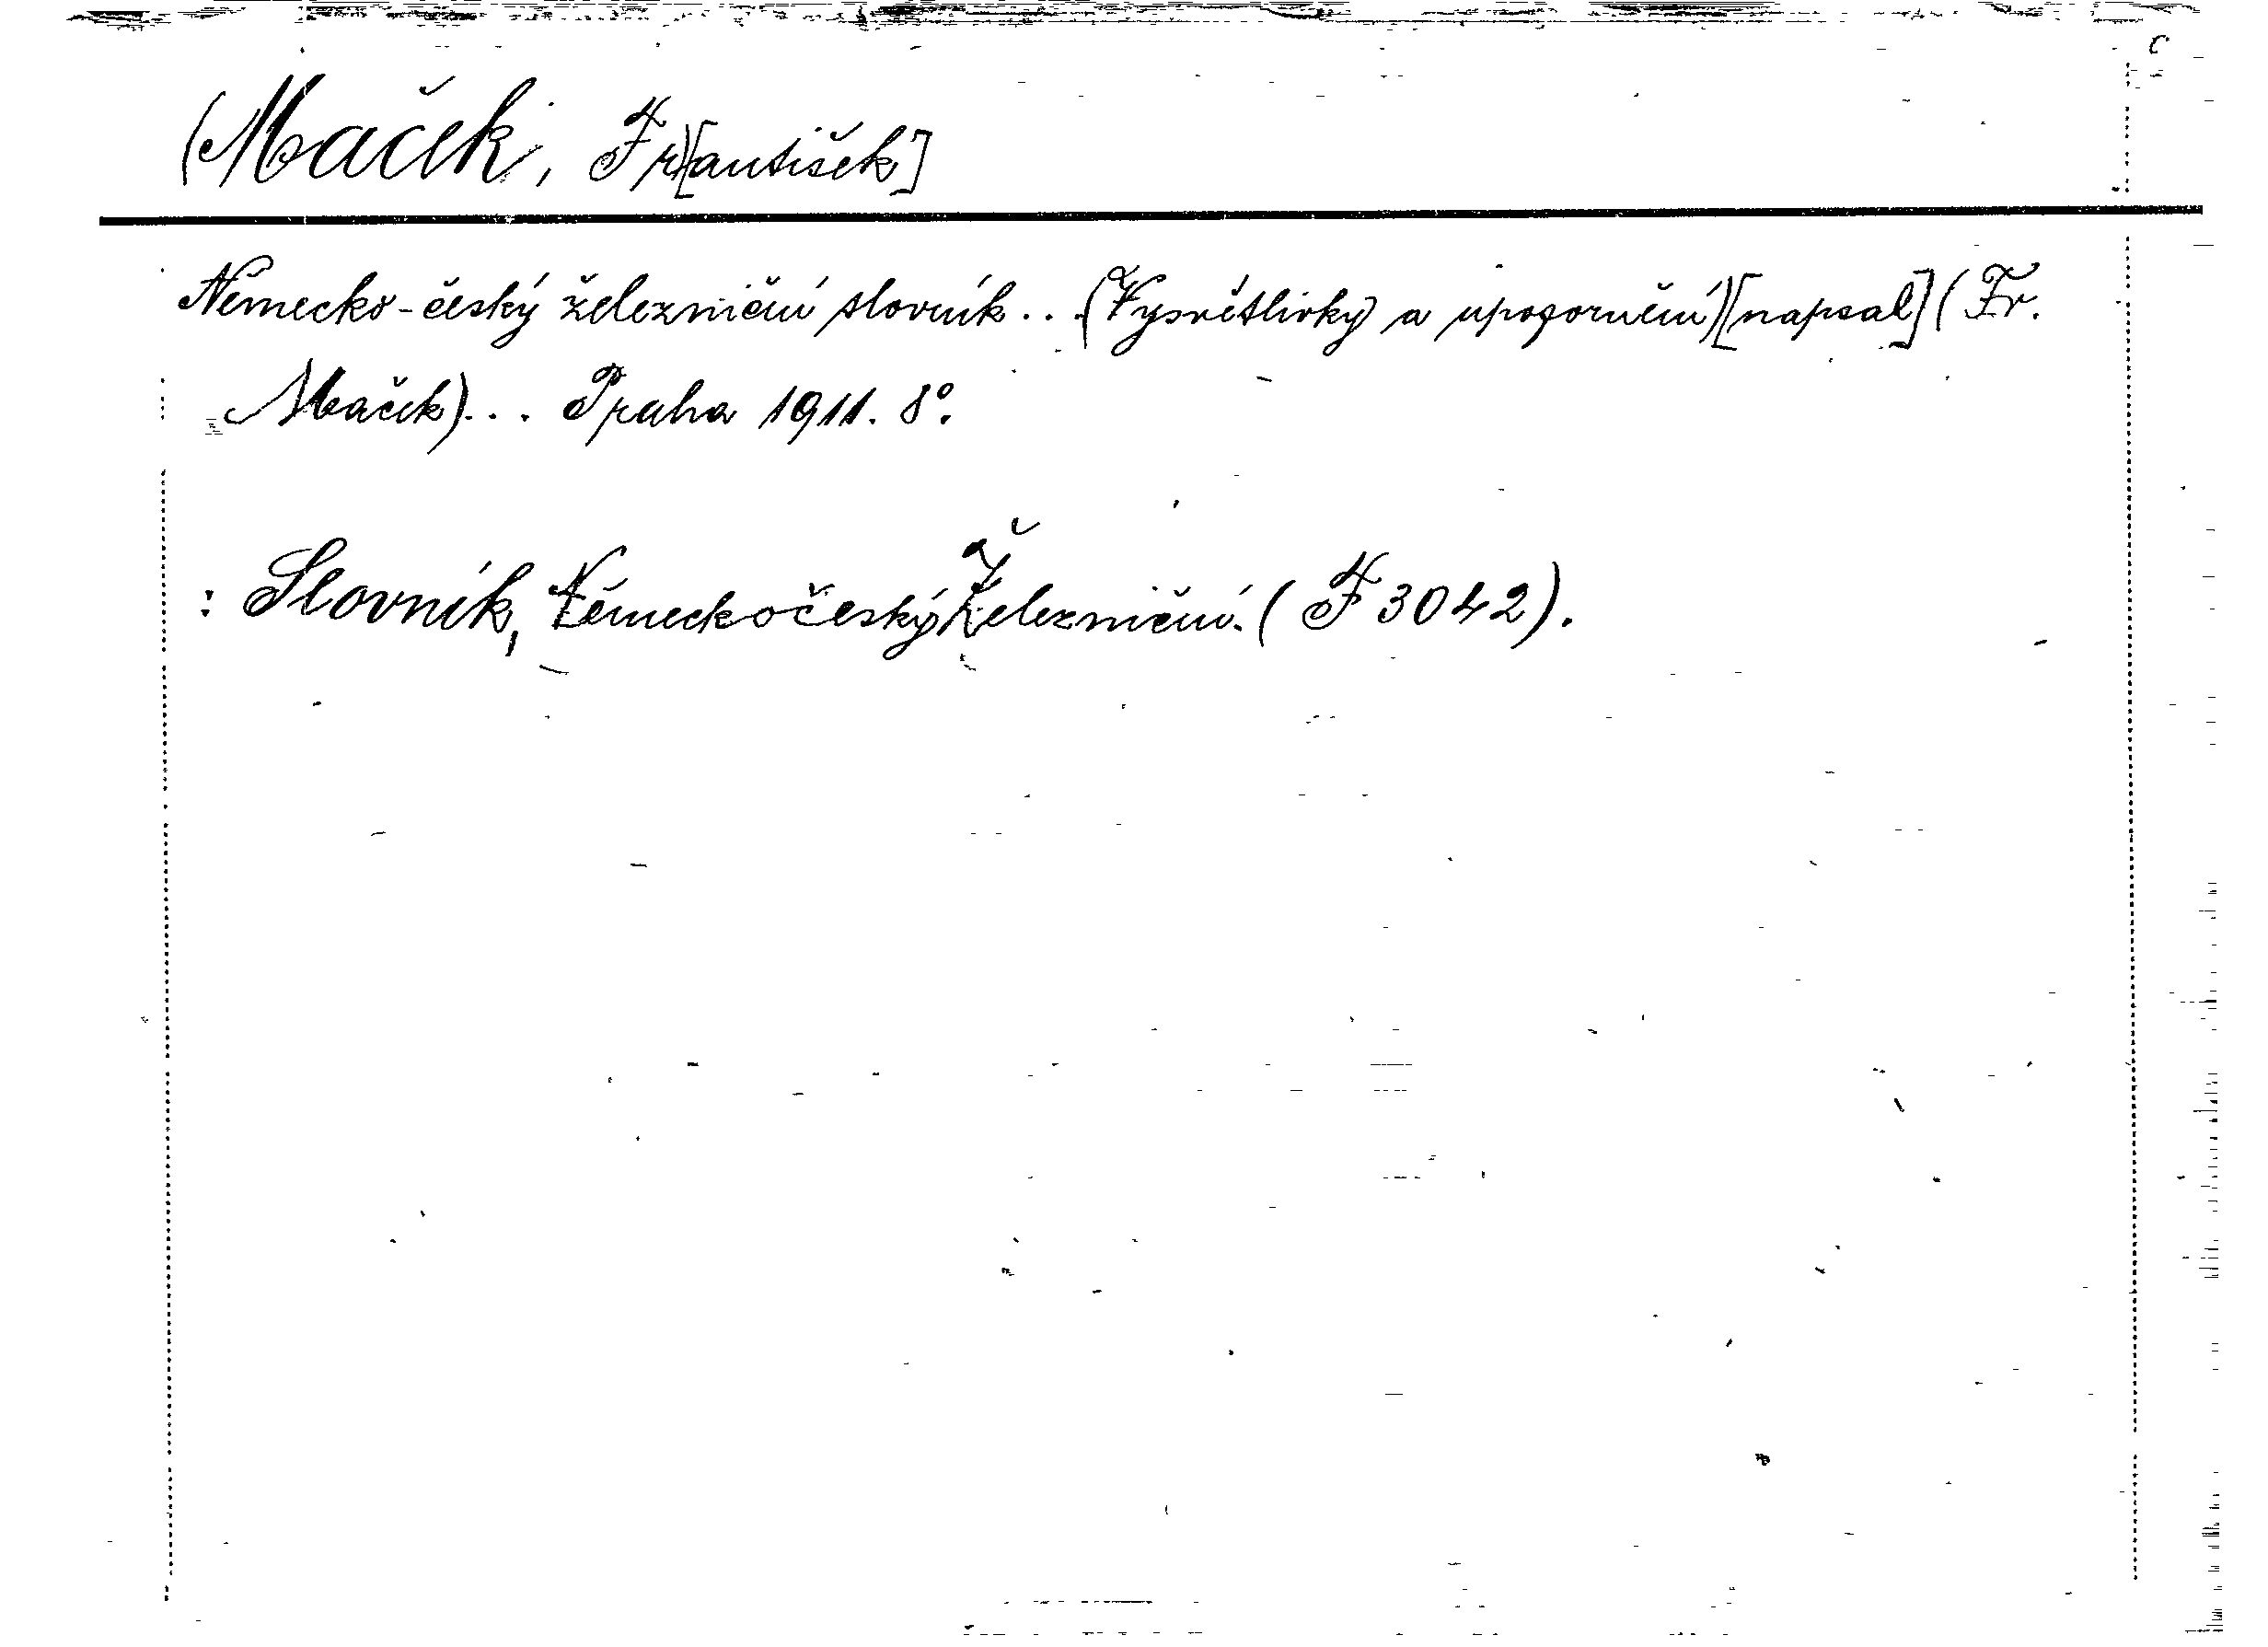 (Maček, Fr)[antišek]
Německo-český železniční slovník...(Vysvětlivky a upozornění)[napsal](Fr.
Maček)... Praha 1911. 8°.
: Slovník, Německočeský Železniční. (F 3042).